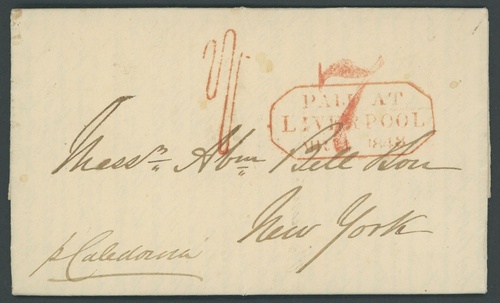 1/
7
PAID AT
LIVERPOOL
1848
Messrs. Abm Bell & Son
New York
p Caledonia